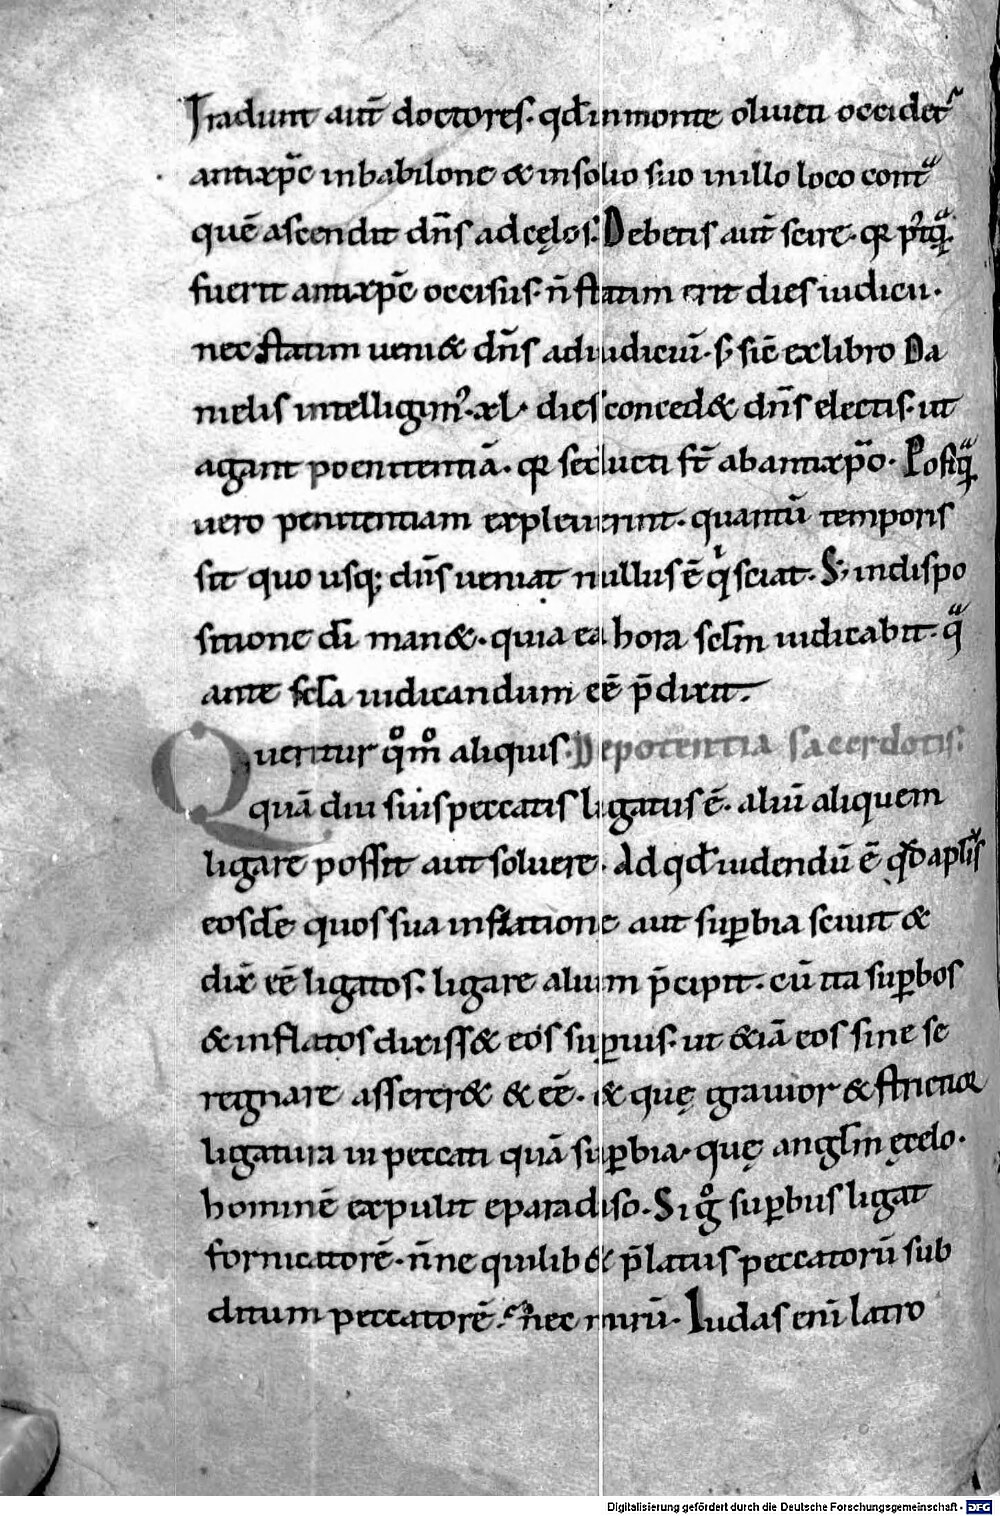 Tradunt aut̄ doctores. qđ in monte oliueti occidet᷑
antixp̄c in babilone & in solio suo in illo loco contᷓ
quē ascendit dn̄s ad cęlos. Debetis aut̄ scire. qꝛ p᷑tqᷓ
fuerit antixp̄c occisus. n̄ statim erit dies iudicii.
nec statim ueni& dn̄s ad iudiciū. s; sic̄ ex libro Da
nielis intelligim᷒. xl. dies conced& dn̄s electis. ut
agant poenitentiā. qꝛ seducti st̄ ab antixp̄o. Postqᷓ
uero penitentiam expleuerint. quantū temporis
sit quo usq; dn̄s ueniat nullus ē qͥ sciat. S; in dispo
sitione dī man&. quia ea hora sclm̄ iudicabit. qᷓ
ante scl̄a iudicandum eē p̄dixit.
Queritur qͦm̊ aliquis. De potentia sacerdotis.
quā diu suis peccatis ligatus ē. aliū aliquem
ligare possit aut soluere. Ad qđ uidendū ē qđ apl̄s
eosdē quos sua inflatione aut suꝑbia sciuit &
dix̄ eē ligatos. ligare alium p̄cipit. cū ita suꝑbos
& inflatos dixiss& eos suꝑius. ut &iā eos sine se
regnare asserer& & eē. & quę grauior & strictior
ligatura in peccati quā suꝑbia. quę anglm̄ ęcelo.
hominē expulit e paradiso. Si gͦ suꝑbus ligat
fornicatorē. n̄ne quilib& p̄latus peccatorū sub
ditum peccatorē? nec mirū. Iudas enī latro
Digitalisierung gefördert durch die Deutsche Forschungsgemeinschaft - DFG